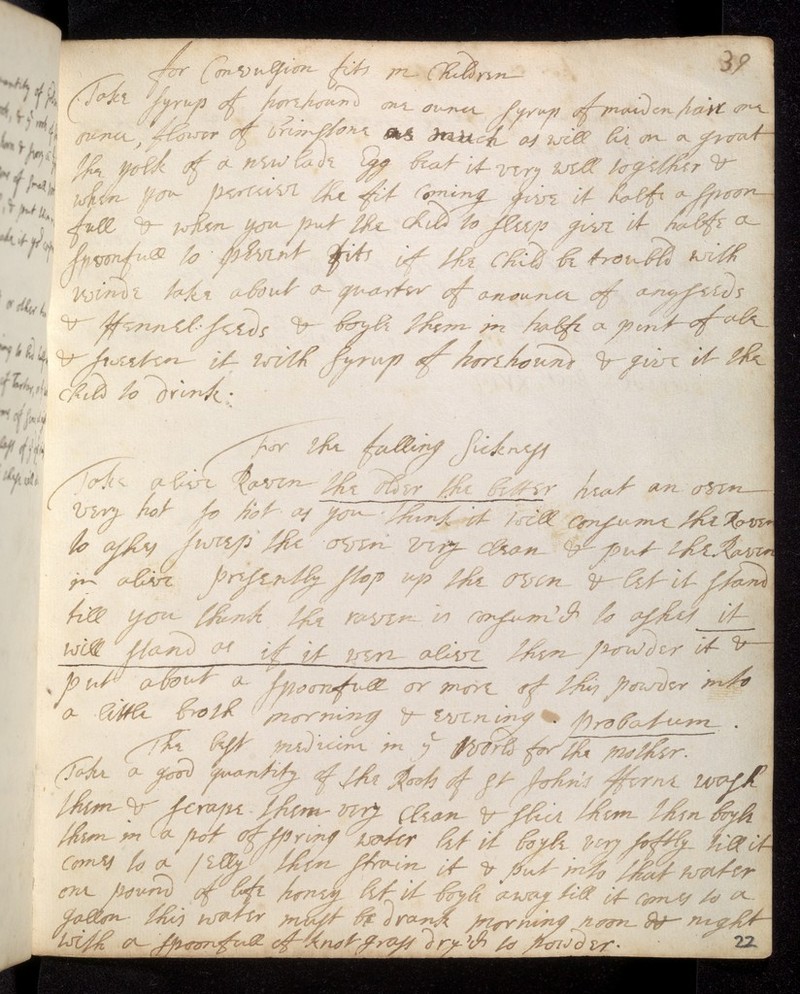 39
for Convulsion fits in Children
Take Syrup of horehound one ounce Syrup of maiden hair one
ounce, flower of brimstone as much as will lie on a groat
the yolk of a new lade Egg beat it very well together &
when you perceive the fit coming give it halfe a spoon
full & when you put the child to sleep give it halfe a
spoonfull to prevent fits if the Child be troubld with
winde take about a quarter of anounce of anyseeds
& ffennel: seeds & boyle them in halfe a pint of ale
& sweeten it with Syrup of horehound & give it the
child to drink:
For the falling Sickness
Take alive Raven the older the better heat an oven
very hot so hot as you think it will consume the Raven
to ashes sweep the oven very clean & put the Raven
in alive presently stop up the oven & let it stand
till you think the raven is consum'd to ashes it
will stand as if it were alive then powder it &
put about a spoonfull or more of this powder into
a little broth morning & evening. Probatum.
The best medicine in ye World for the mother.
Take a good quantity of the Roots of St John's fferne wash
them & scrape them very clean & slice them then boyle
them in a pot of spring water let it boyle very softly till it
comes to a Jelly then strain it & put into that water
one pound of life honey let it boyle away till it comes to a
gallon this water must be drank morning noon & night
with a spoonfull of knot grass dry'd to powder.
22